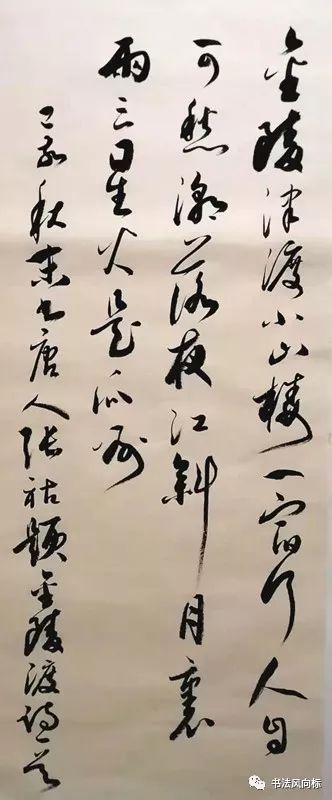 金陵津渡小山樓一宿行人自
可愁潮落夜江斜月裏
兩三星火是瓜洲
己亥秋末書唐人張祜題金陵渡詩一首
书法风向标